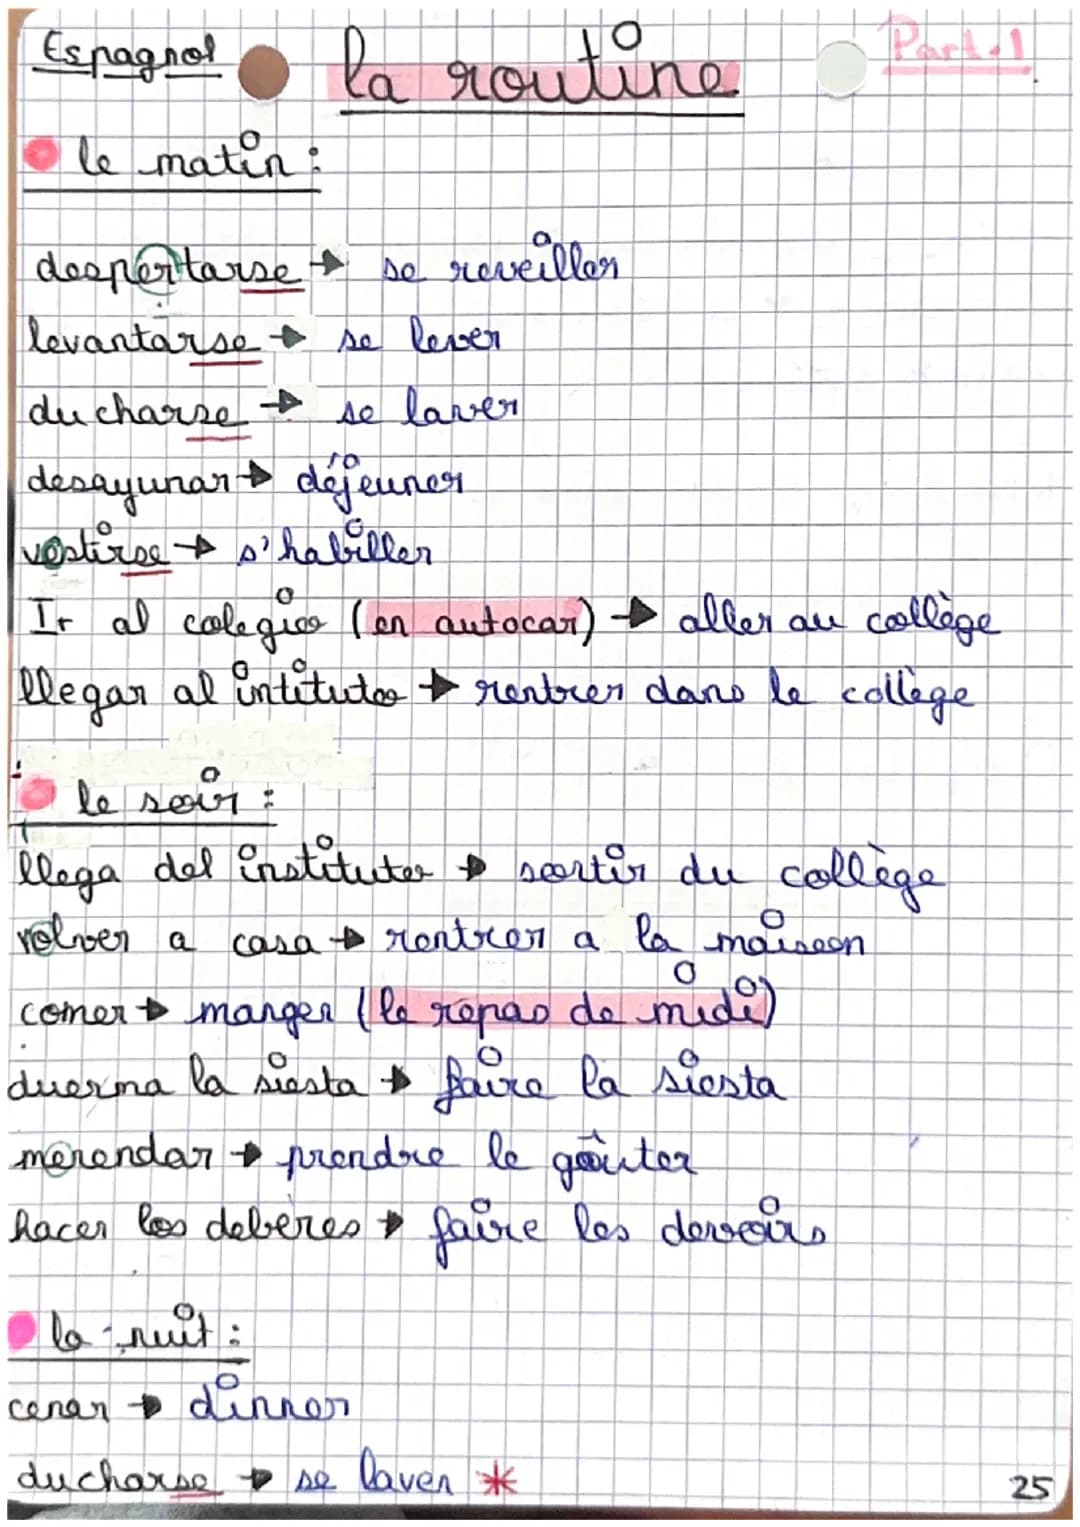 Espagnol
la routine
Part.1
le matin :
despertarse → se reveiller
levantarse → se lever
ducharse → se laver
desayunar → déjeuner
vestirse → s'habiller
Ir al colegio (en autocar) → aller au collège
llegar al intituto → rentrer dans le collège
le soir :
llega del instituto → sortir du collège
volver a casa → rentrer a la maison
comer → manger (le repas de midi)
duerma la siesta → faire la siesta
merendar → prendre le goûter
hacer los deberes → faire les devoirs
la nuit :
cenar → dinner
ducharse → se laver *
25